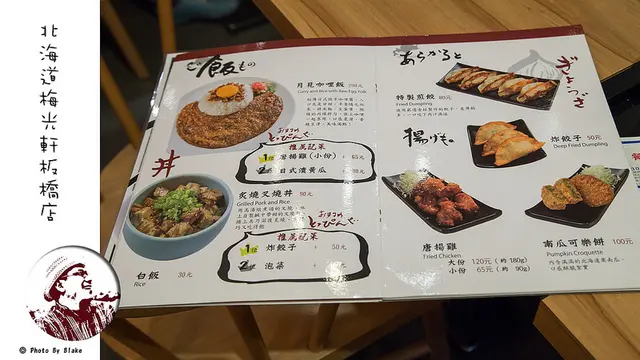 北海道梅光軒板橋店
© Photo By Blake
飯もの
月見咖哩飯 200元
Curry and Rice with Raw Egg Yolk
推薦配菜
1位 唐揚雞(小份) + 65元
2位 日式漬黃瓜 +
丼
炙燒叉燒丼 90元
Grilled Pork and Rice
推薦配菜
1位 炸餃子 + 50元
2位 泡菜 +
白飯 30元
Rice
あらかると
ぎょうざ
特製煎餃 80元
Fried Dumpling
揚げもの
炸餃子 50元
Deep Fried Dumpling
唐揚雞
Fried Chicken
大份 120元 (約 180g)
小份 65元 (約 90g)
南瓜可樂餅 100元
Pumpkin Croquette